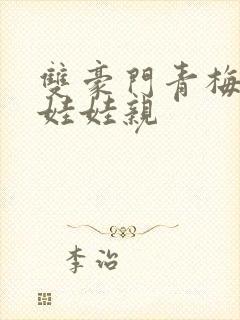 雙豪門青梅
娃娃親
李治